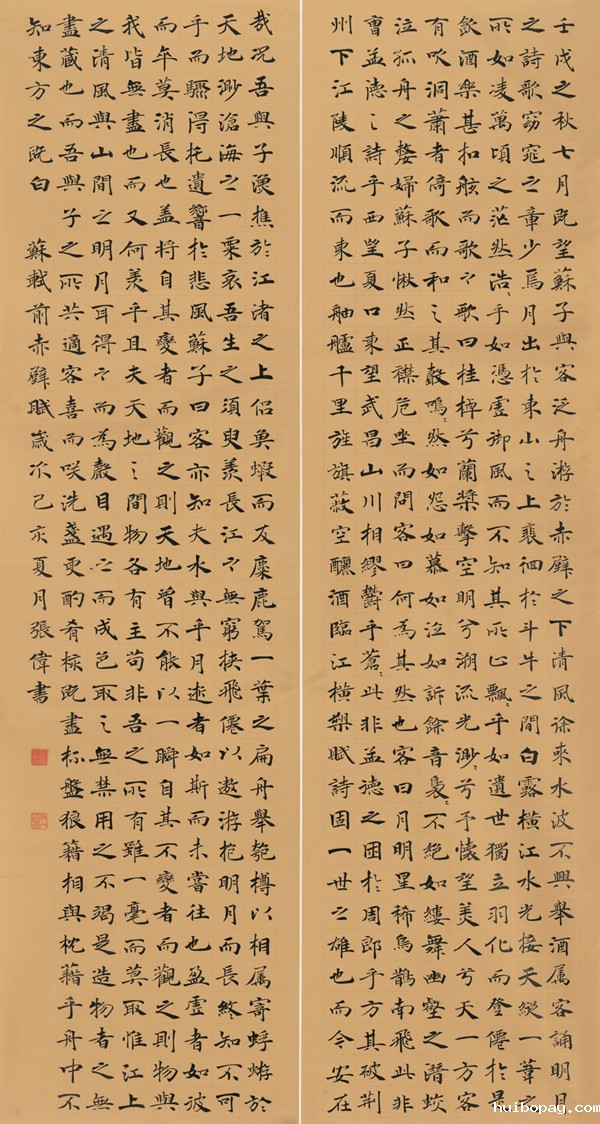 壬戌之秋七月既望蘇子與客泛舟游於赤壁之下清風徐來水波不興舉酒属客誦明月
之詩歌窈窕之章少焉月出於東山之上裵徊於斗牛之間白露橫江水光接天縱一葦之
所如凌萬頃之茫然浩〻乎如憑虛御風而不知其所止飄〻乎如遺世獨立羽化而登僊於是
飲酒樂甚扣舷而歌之歌曰桂棹兮蘭槳擊空明兮溯流光渺〻兮予懷望美人兮天一方客
有吹洞蕭者倚歌而和之其聲嗚〻然如怨如慕如泣如訴餘音裊〻不絕如縷舞幽壑之潛蛟
泣孤舟之嫠婦蘇子愀然正襟危坐而問客曰何為其然也客曰月明星稀烏鵲南飛此非
曹孟德之詩乎西望夏口東望武昌山川相繆鬱乎蒼〻此非孟德之困於周郎乎方其破荊
州下江陵順流而東也舳艫千里旌旗蔽空釃酒臨江橫槊賦詩固一世之雄也而今安在
哉況吾與子漁樵於江渚之上侣魚蝦而友麋鹿駕一葉之扁舟舉匏樽以相属寄蜉蝣於
天地渺滄海之一粟哀吾生之須臾羨長江之無窮挾飛僊以遨游抱明月而長終知不可
乎而驟得托遺響於悲風蘇子曰客亦知夫水與乎月逝者如斯而未嘗往也盈虛者如彼
而卒莫消長也盖將自其變者而觀之則天地曾不能以一瞬自其不變者而觀之則物與
我皆無盡也而又何羨乎且夫天地之間物各有主苟非吾之所有雖一毫而莫取惟江上
之清風與山間之明月耳得之而為聲目遇之而成色取之無禁用之不竭是造物者之無
盡藏也而吾與子之所共適客喜而咲洗盞更酌肴核既盡杯盤狼籍相與枕藉乎舟中不
知東方之既白 蘇軾前赤壁賦歲次己亥夏月張偉書
huibopay.com